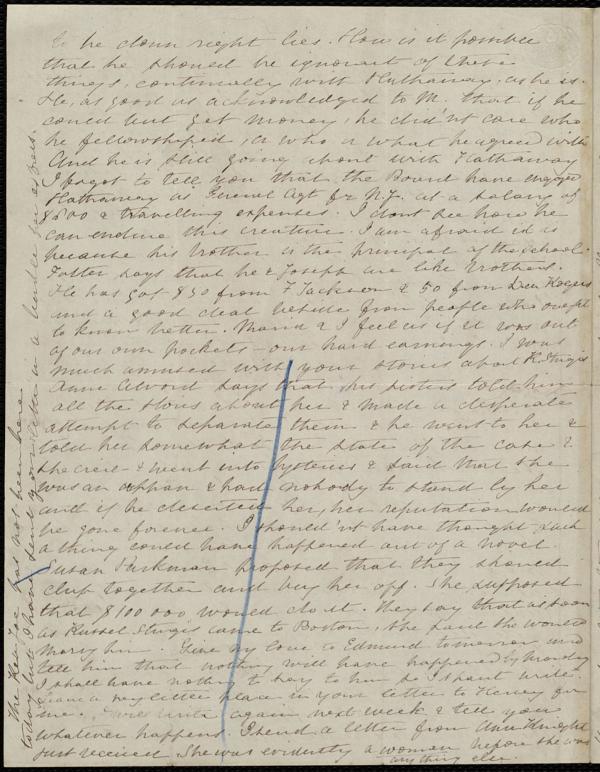 to be down right lies. How is it possible
that he should be ignorant of these
things, continually with Hathaway, as he is.
He, as good as acknowledged to M. that if he
could but get money, he did'nt care who
he fellowshiped, or who or what he agreed with
And he is still going about with Hathaway
I forgot to tell you that the Board have engaged
Hathaway as General Agt for N.Y. at a salary of
$800 & travelling expenses. I dont see how he
can endure this creature. I am afraid it is
because his brother is the principal of the school.
Potter says that he & Joseph are like brothers.
He has got $50 from F Jackson & 50 from Dea
and a good deal beside from people who ought
to know better. & I feel as if it was out
of our own pockets - our hard earnings. I was
much amused with your stories about R. Sturgis
Anne Alvord says that his sisters told him
all the stories about her & made a desperate
attempt to separate them & he went to her &
told her somewhat the state of the case &
she cried & went into hysterics & said that she
was an orphan & had nobody to stand by her
and if he deserted her, her reputation would
be gone forever. I should'nt have thought such
a thing could have happened out of a novel.
Susan Parkman proposed that they should
club together and buy her off. She supposed
that $100 000 would do it. They say that as soon
as Russel Sturgis came to Boston, she said she would
marry him. Give my love to Edmund tomorrow and
tell him that nothing will have happened by Monday
I shall have nothing to say to him so I shant write.
Leave a very little place in your letter to Henry for
me. I will write again next week & tell you
whatever happens. I send a letter from Ann Knight
just received She was evidently a woman before she was
anything else.
The Rev. has not been here
today but I have sent your letter in a bundle for express.